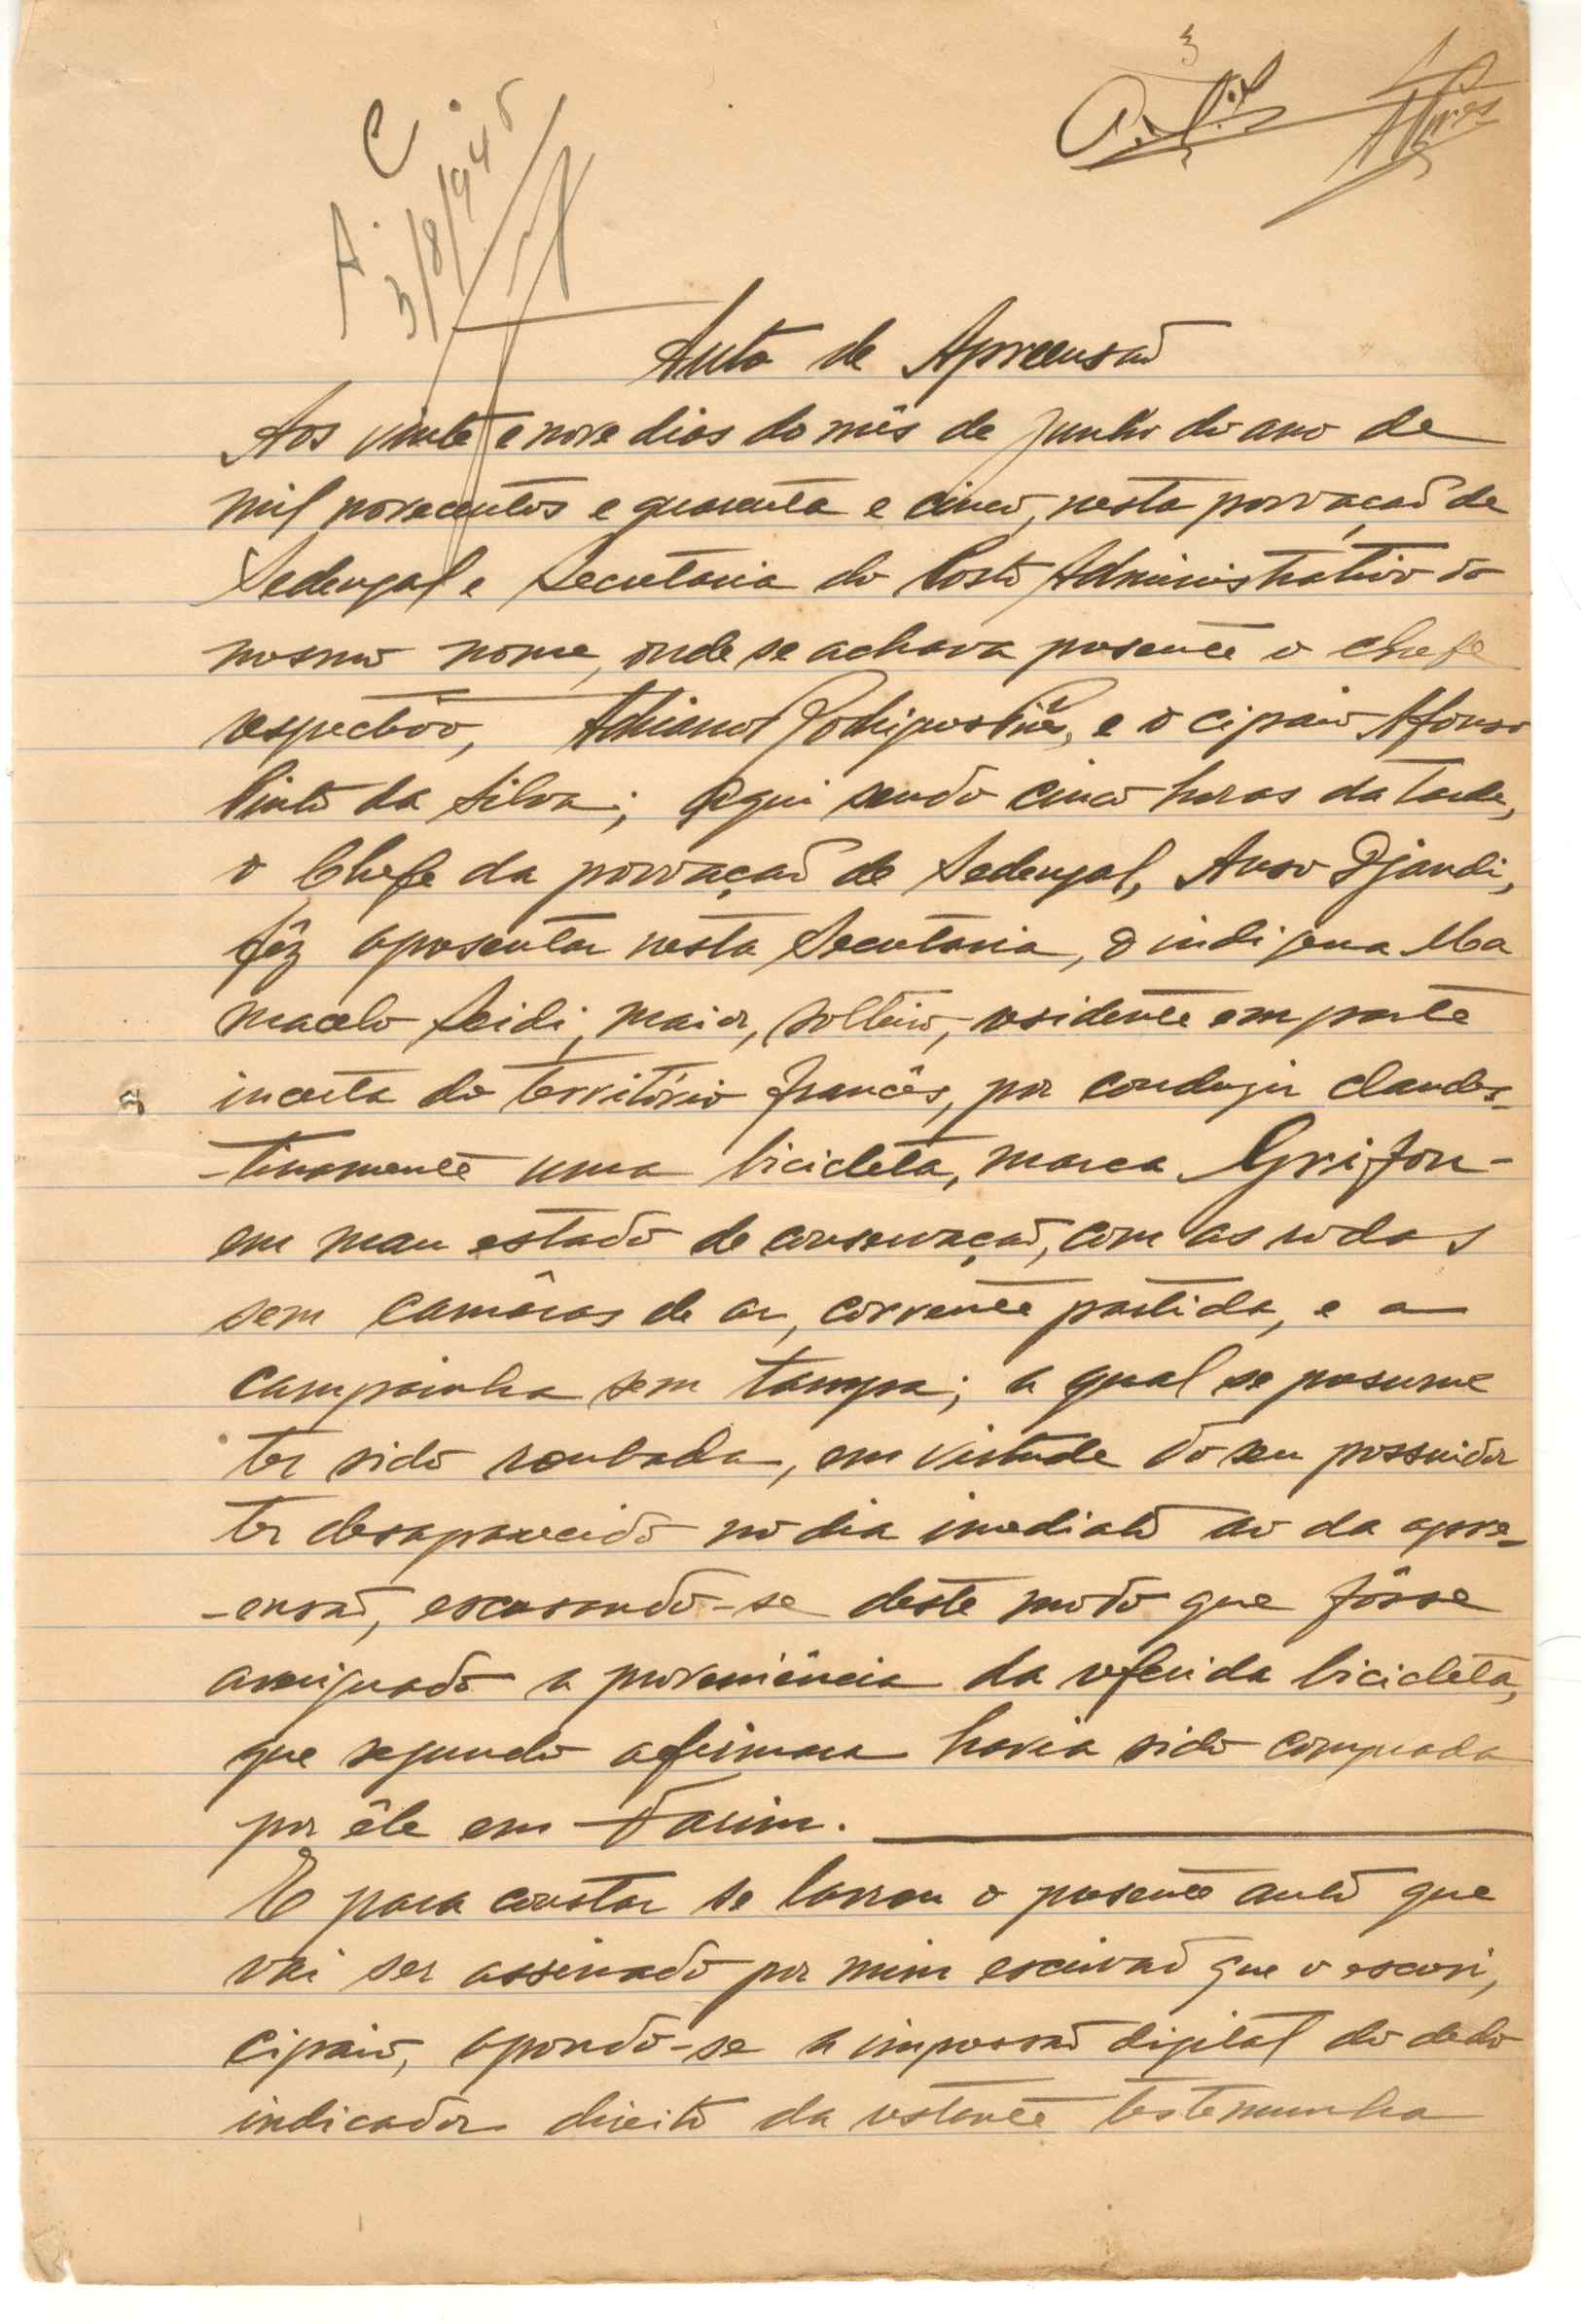 3
A. C.
3/8/945
Auto de Apreensão
Aos vinte e nove dias do mês de Junho do ano de
mil novecentos e quarenta e cinco, nesta povoação de
Sedengal e Secretaria do Posto Administrativo do
mesmo nome, onde se achava presente o chefe
respectivo, Adriano Rodrigues Pires, e o cipaio Afonso
Pinto da Silva; Aqui sendo cinco horas da tarde,
o Chefe da povoação de Sedengal, Anso Djandi,
fêz apresentar nesta Secretaria, o indigena Ma
macelo Seidi, maior, solteiro, residente em parte
incerta do território francês, por conduzir clandes-
-tinamente uma bicicleta, marca Grifon-
em mau estado de conservação, com as rodas
sem camâras de ar, corrente partida, e a
campainha sem tampa; a qual se presume
ter sido roubada, em virtude do seu possuidor
ter desaparecido no dia imediato ao da apre-
-ensão, escusando-se deste modo que fôsse
averiguado a proveniência da referida bicicleta,
que segundo afirmara havia sido comprada
por êle em Farim.
E para constar se lavrou o presente auto que
vai ser assinado por mim escrivão que o escrevi,
cipaio, apondo-se a impressão digital do dedo
indicador direito da restante testemunha